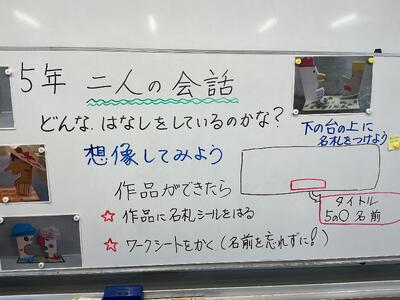 5年 二人の会話
どんな、はなしをしているのかな?
想像してみよう
下の台の上に
名札をつけよう
作品ができたら
☆ 作品に名札シールをはる
☆ ワークシートをかく(名前を忘れずに!)
タイトル
5の〇 名前